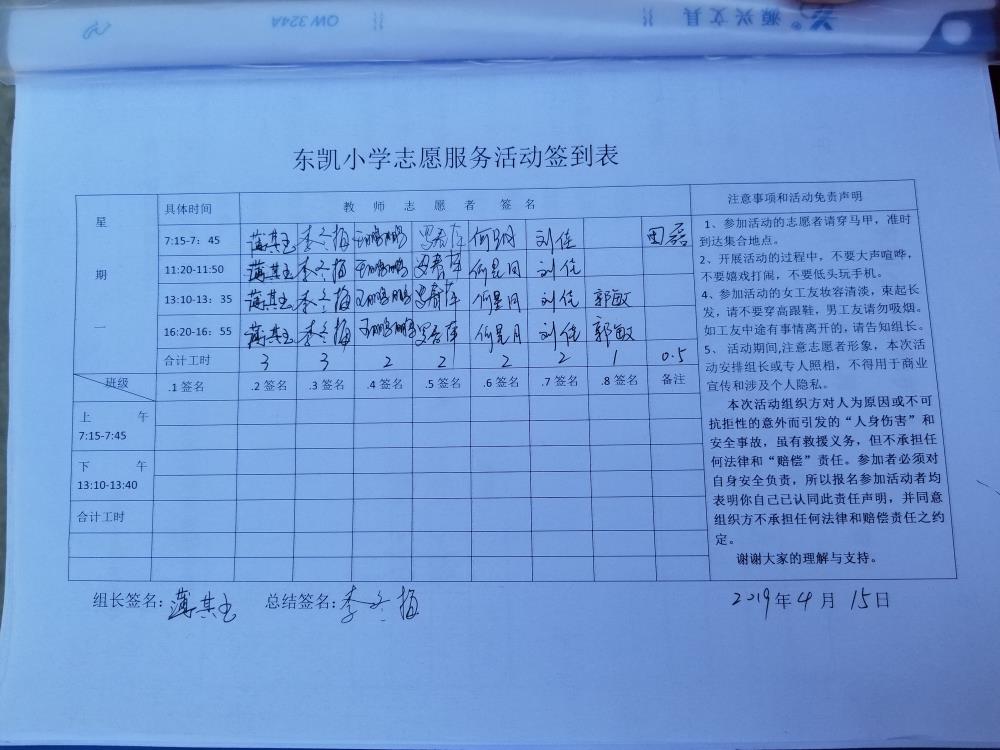 源兴文具
QW 324A
东凯小学志愿服务活动签到表
星期一 具体时间 教师志愿者签名 注意事项和活动免责声明
7:15-7:45 薄其玉 李冬梅 王鹏鹏 罗春萍 何星月 刘佳 田磊
11:20-11:50 薄其玉 李冬梅 王鹏鹏 罗春萍 何星月 刘佳
13:10-13:35 薄其玉 李冬梅 王鹏鹏 罗春萍 何星月 刘佳 郭敏
16:20-16:55 薄其玉 李冬梅 王鹏鹏 罗春萍 何星月 刘佳 郭敏
合计工时 3 3 2 2 2 2 1 0.5
班级 .1 签名 .2 签名 .3 签名 .4 签名 .5 签名 .6 签名 .7 签名 .8 签名 备注
上 午
7:15-7:45
下 午
13:10-13:40
合计工时
1、参加活动的志愿者请穿马甲，准时
到达集合地点。
2、开展活动的过程中，不要大声喧哗，
不要嬉戏打闹，不要低头玩手机。
4、参加活动的女工友妆容清淡，束起长
发，请不要穿高跟鞋，男工友请勿吸烟。
如工友中途有事情离开的，请告知组长。
5、 活动期间,注意志愿者形象，本次活
动安排组长或专人照相，不得用于商业
宣传和涉及个人隐私。
本次活动组织方对人为原因或不可
抗拒性的意外而引发的“人身伤害”和
安全事故，虽有救援义务，但不承担任
何法律和“赔偿”责任。参加者必须对
自身安全负责，所以报名参加活动者均
表明你自己已认同此责任声明，并同意
组织方不承担任何法律和赔偿责任之约
定。
谢谢大家的理解与支持。
组长签名：薄其玉 总结签名：李冬梅 2019年4月15日